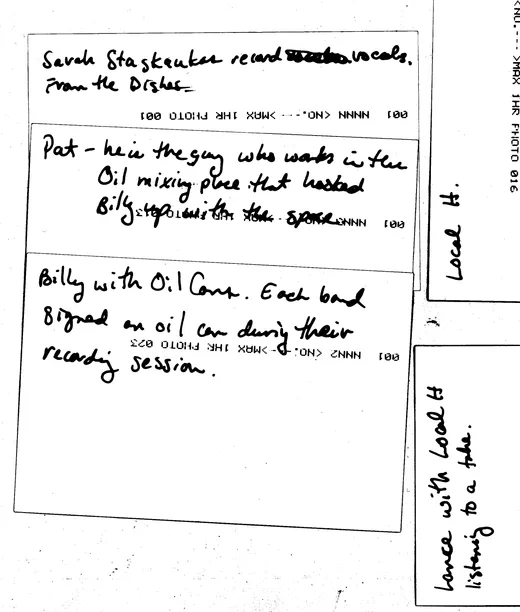 Sarah Staskaukas record vocals.
From the Dishes
001 NNNN <NO.--- >MAX 1HR PHOTO 001
Pat - he is the guy who works in the
Oil mixing place that hooked
Billy up with the space
001
Billy with Oil Cans. Each band
signed an oil can during their
recording session.
001 NNN2 <NO.--->MAX 1HR PHOTO 023
Local H.
<NO.--- >MAX 1HR PHOTO 016
Lance with Local H
listening to a take.